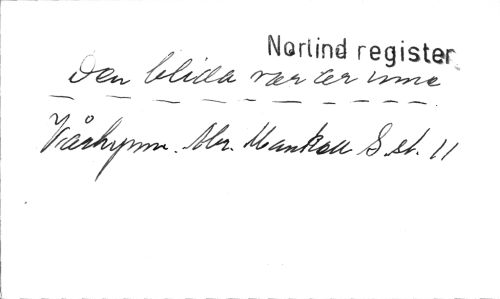 Norlind register
Den blida vår är inne
Vårhymn. Abr. Mankell S. st. 11